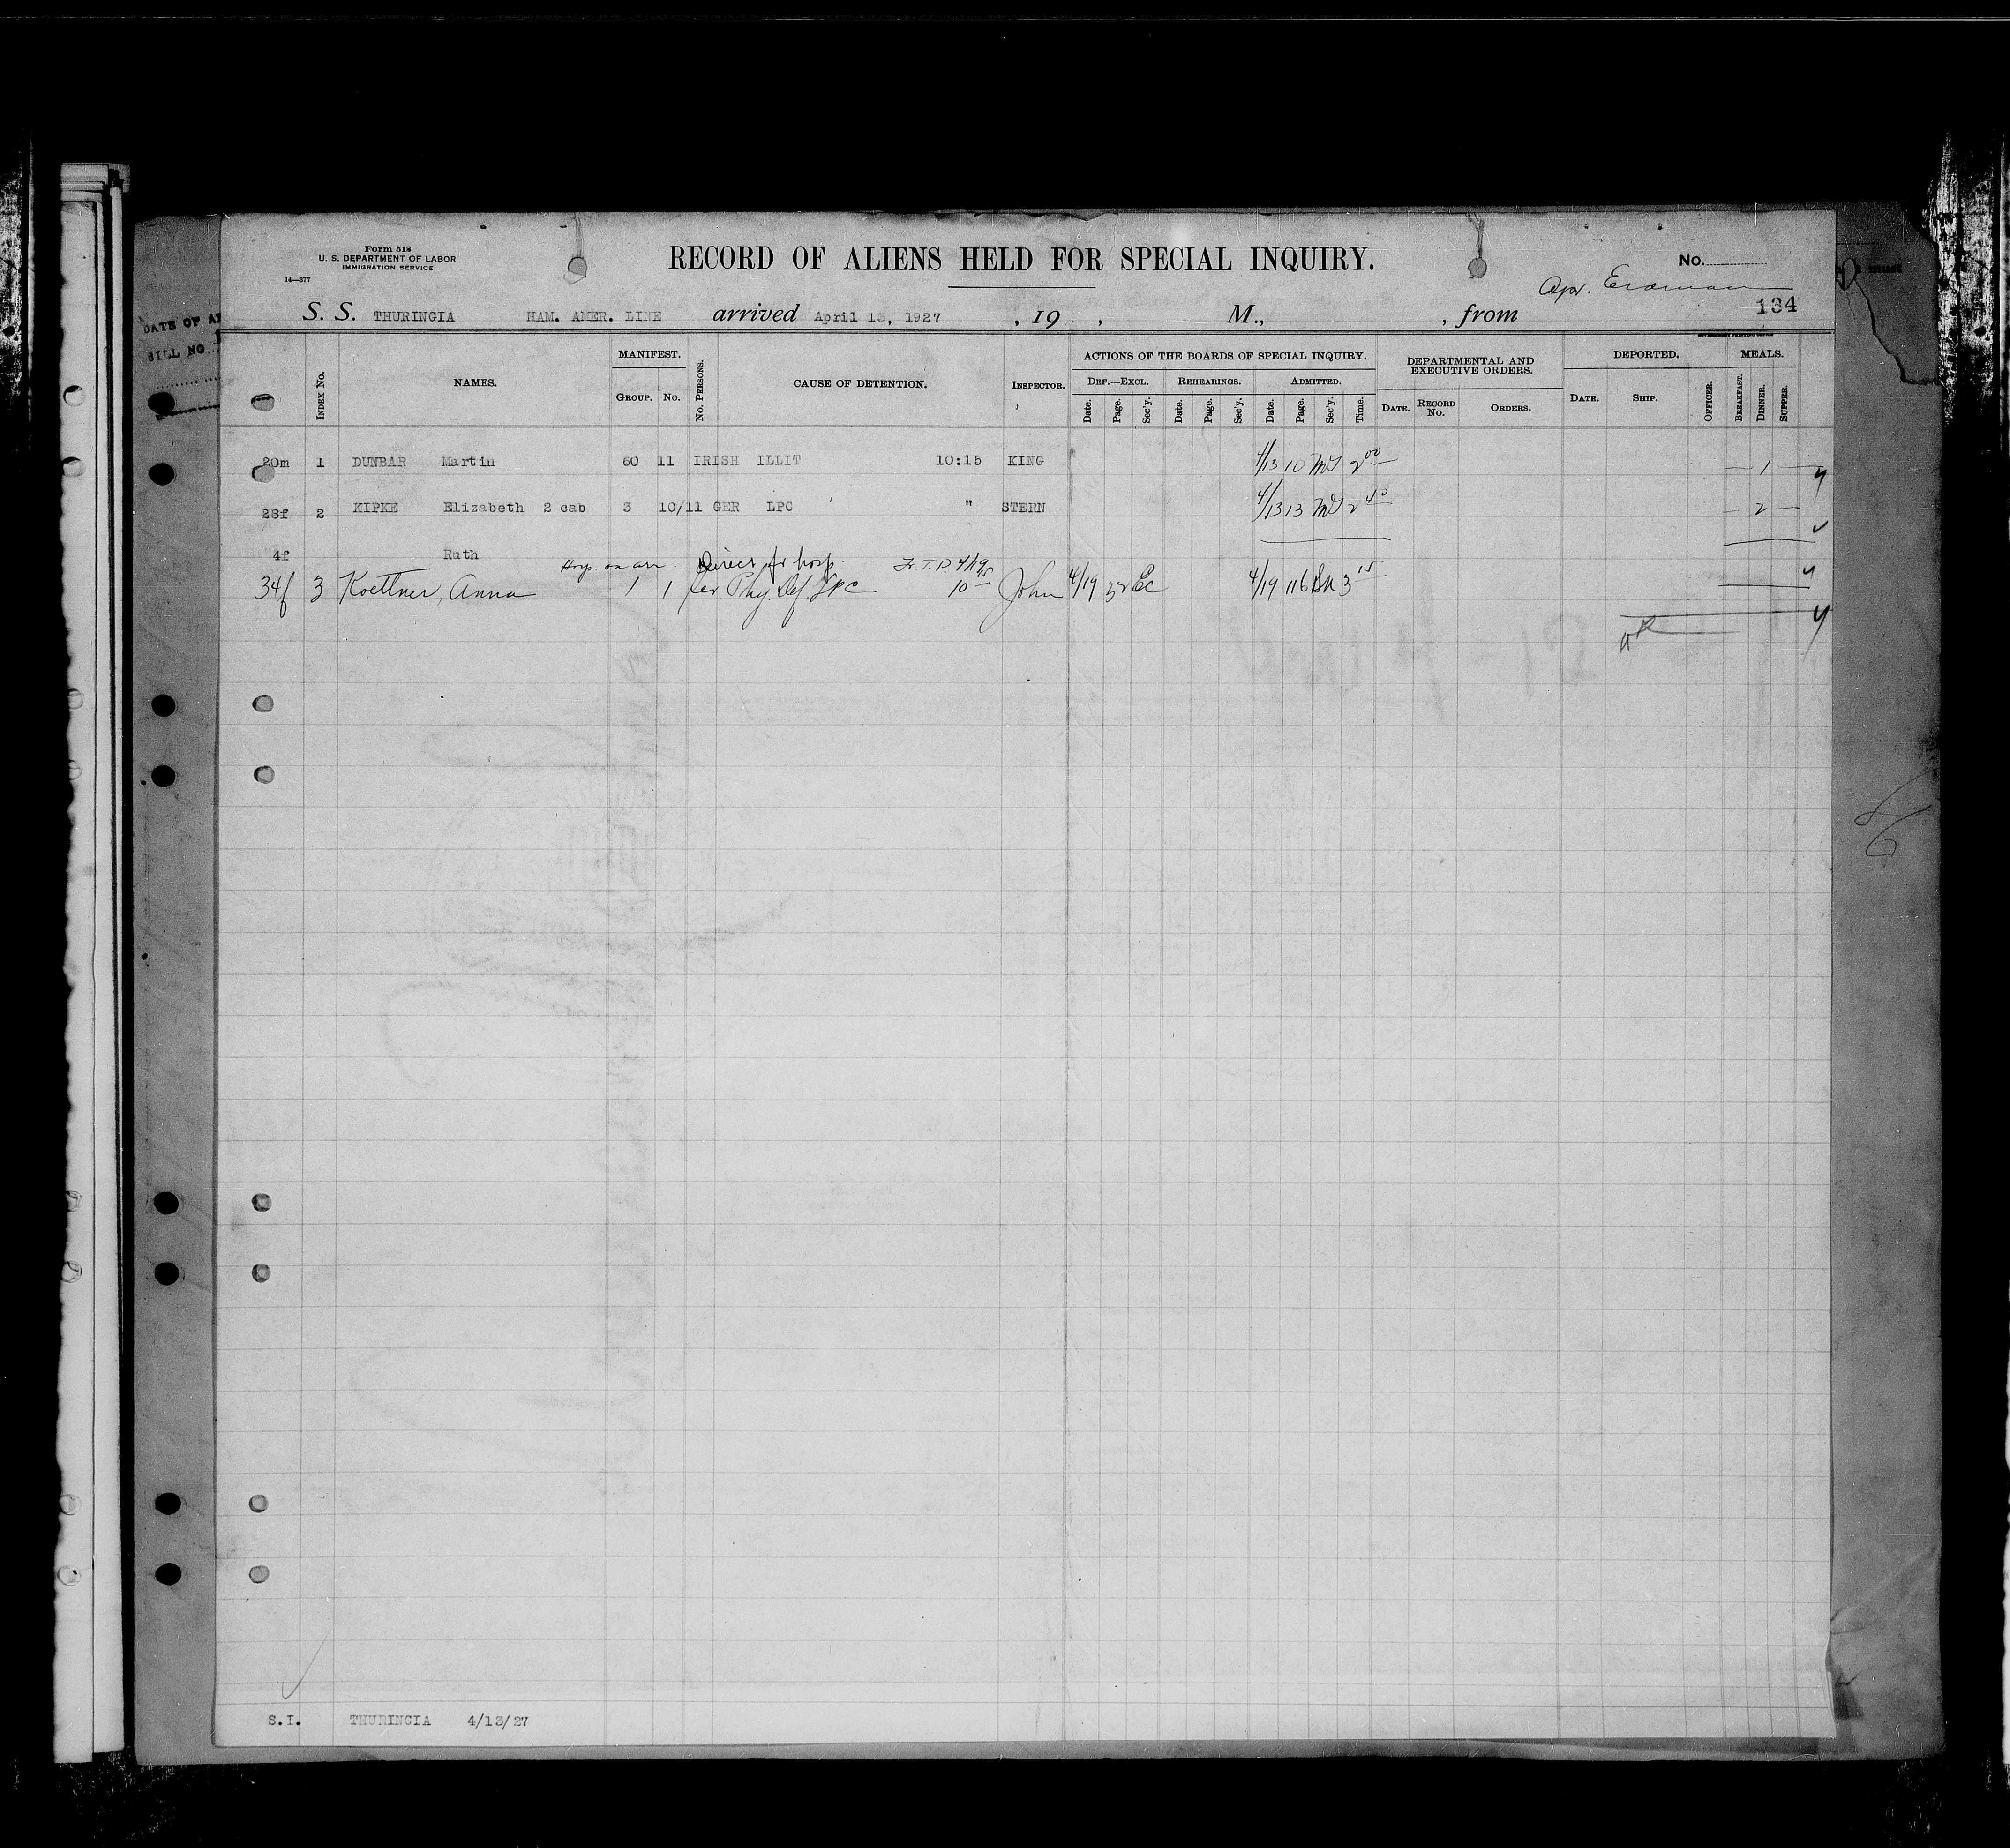 Form 518
U. S. DEPARTMENT OF LABOR
IMMIGRATION SERVICE
14—577
RECORD OF ALIENS HELD FOR SPECIAL INQUIRY.
No.
134
S. S. THURINGIA HAM. AMER. LINE arrived April 13, 1927 , 19 , M., , from
DATE OF
BILL NO
must
INDEX No.
NAMES.
MANIFEST.
GROUP. No.
No. PERSONS.
CAUSE OF DETENTION.
INSPECTOR.
ACTIONS OF THE BOARDS OF SPECIAL INQUIRY.
DEF.—EXCL. REHEARINGS. ADMITTED.
Date. Page. Sec'y. Date. Page. Sec'y. Date. Page. Sec'y. Time.
DEPARTMENTAL AND
EXECUTIVE ORDERS.
DATE. RECORD No. ORDERS.
DEPORTED.
DATE. SHIP. OFFICER.
MEALS.
BREAKFAST. DINNER. SUPPER.
20m 1 DUNBAR Martin 60 11 IRISH ILLIT 10:15 KING 4/13 10 2 00 — 1 —
28f 2 KIPKE Elizabeth 2 cab 3 10/11 GER LPC " STERN 4/13 13 2 40 — 2 —
4f Ruth
Hosp. on arr. Direct fr hosp.
34f 3 Koettner, Anna 1 1 Ger. Phy. Def. LPC 10 John 4/19 32 Ec 4/19 116 3 15
S.I. THURINGIA 4/13/27